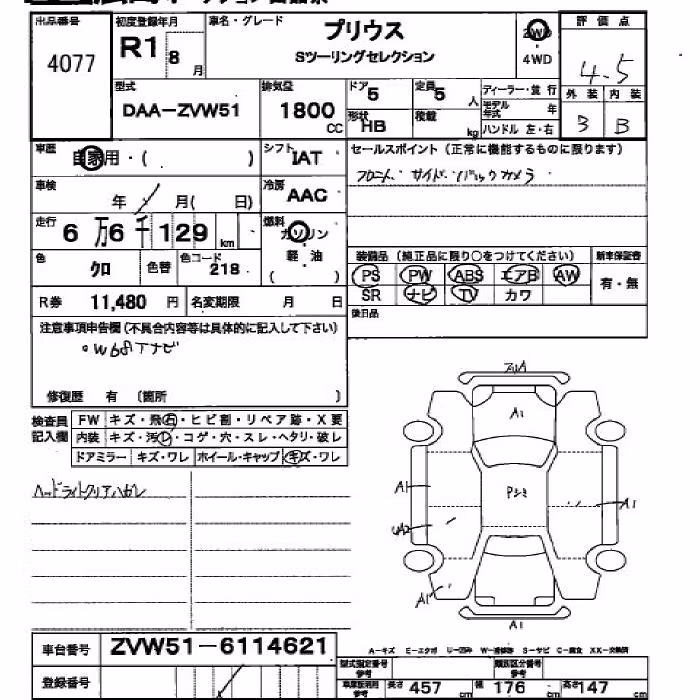 出品番号
4077
初度登録年月
R1 8 月
車名・グレード
プリウス
Sツーリングセレクション
2WD
・
4WD
評価点
4.5
外装 内装
3 B
型式
DAA-ZVW51
排気量
1800 CC
ドア 5
定員 5 人
形状 HB
積載 kg
ディーラー・並行
モデル年式 年
ハンドル 左・右
車歴
自家用・( )
シフト IAT
セールスポイント (正常に機能するものに限ります)
フロント・サイド・バックカメラ
車検
年 月( 日)
冷房 AAC
走行
6万6千129 km
燃料
ガソリン
軽・油
( )
色
クロ
色替
色コード
218
装備品 (純正品に限り○をつけてください)
新車保証書
PS PW ABS エアB AW
有・無
SR ナビ TV カワ
R券 11,480 円
名変期限 月 日
後日品
注意事項申告欄 (不具合内容等は具体的に記入して下さい)
○W68Tナビ
修復歴 有 (箇所 )
検査員
記入欄
FW キズ・飛石・ヒビ割・リペア跡・X要
内装 キズ・汚レ・コゲ・穴・スレ・ヘタリ・破レ
ドアミラー キズ・ワレ ホイール・キャップ キズ・ワレ
ヘッドライトクリアハガレ
A1
A1
Pシミ
A1
UA2
A1
A1
車台番号
ZVW51-6114621
登録番号
A-キズ E-エクボ U-凹み W-補修跡 S-サビ C-腐食 XX-交換済
型式指定番号
参考
類別区分番号
参考
参考
長さ 457 cm
幅 176 cm
高さ 147 cm